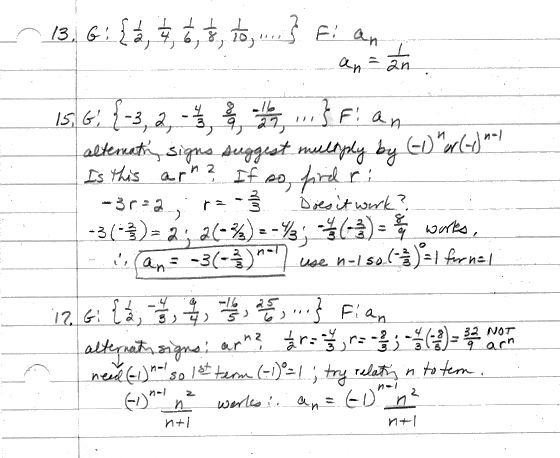 13. G: {1/2, 1/4, 1/6, 1/8, 1/10, ....} F: aₙ
aₙ = 1/2n.
15. G: {-3, 2, -4/3, 8/9, -16/27, ...} F: aₙ
alternatı̇, signs suggest multiply by (-1)ⁿ or (-1)ⁿ⁻¹
Is this arⁿ? If so, find r:
-3r = 2, r = -2/3 Does it work?
-3(-2/3) = 2; 2(-2/3) = -4/3; -4/3(-2/3) = 8/9 works.
∴ aₙ = -3(-2/3)ⁿ⁻¹ use n-1 so (-2/3)⁰ = 1 for n=1
17. G: {1/2, -4/3, 9/4, -16/5, 25/6, ...} F: aₙ
alternatı̇ signs; arⁿ? 1/2 r = -4/3, r = -8/3; -4/3(-8/3) = 32/9 NOT arⁿ
need (-1)ⁿ⁻¹ so 1st term (-1)⁰=1; try relatı̇ n to term.
(-1)ⁿ⁻¹ n²/n+1 works ∴ aₙ = (-1)ⁿ⁻¹ n²/n+1